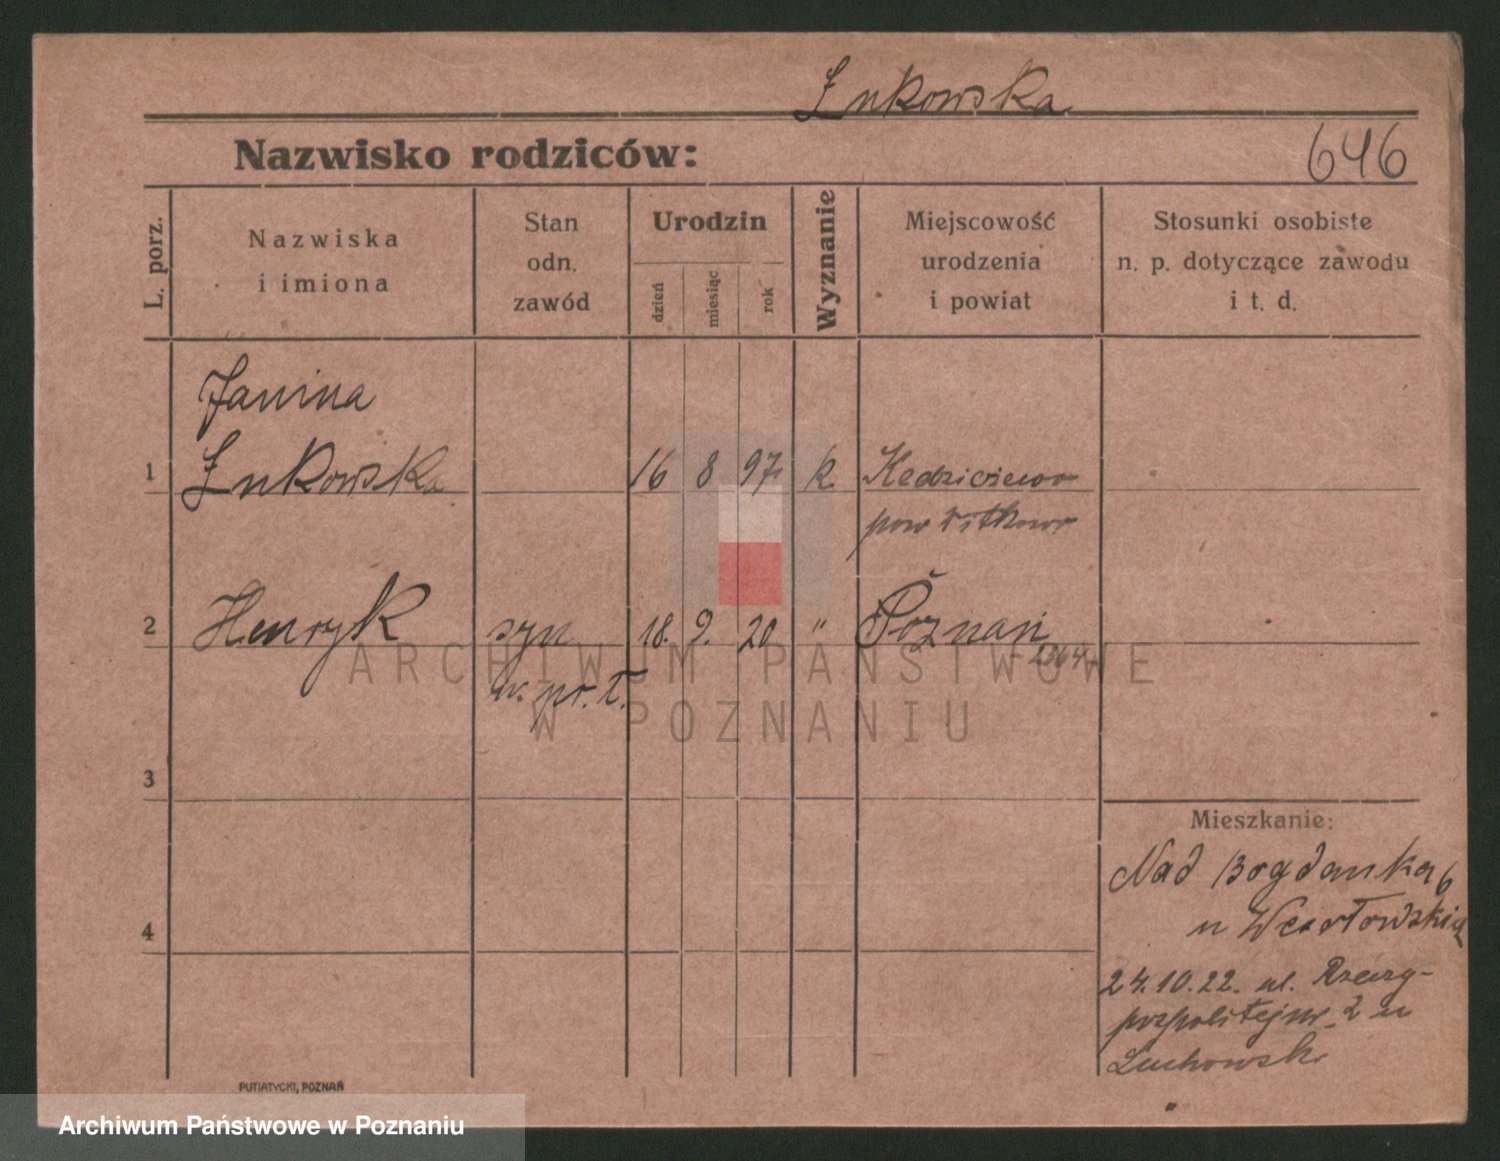 Żukowska
Nazwisko rodziców:
646
L. porz.
Nazwiska
i imiona
Stan
odn.
zawód
Urodzin
dzień
miesiąc
rok
Wyznanie
Miejscowość
urodzenia
i powiat
Stosunki osobiste
n. p. dotyczące zawodu
i t. d.
Janina
1 Żukowska 16 8 97 k.
pow Witkowo
2 Henryk syn 18. 9. 20 " Poznań
2364
ARCHIWUM PAŃSTWOWE
W POZNANIU
3
Mieszkanie:
Nad Bogdanką 6
4
24.10.22. ul. Rzeczy-
pospolitej nr. 2 u
PUTIATYCKI, POZNAŃ
Archiwum Państwowe w Poznaniu